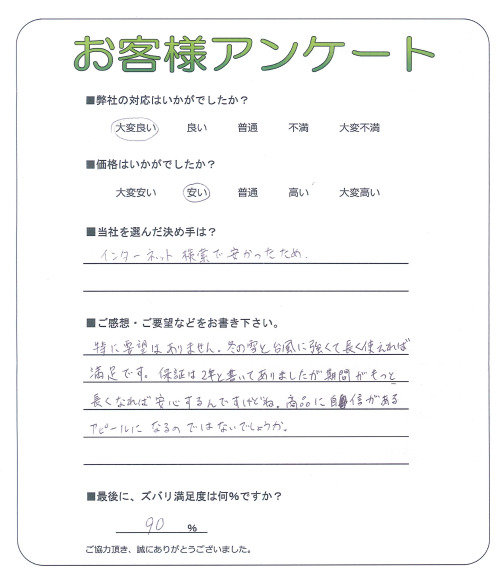 お客様アンケート
■弊社の対応はいかがでしたか？
大変良い 良い 普通 不満 大変不満
■価格はいかがでしたか？
大変安い 安い 普通 高い 大変高い
■当社を選んだ決め手は？
インターネット検索で安かったため.
■ご感想・ご要望などをお書き下さい。
特に要望はありません。冬の雪と台風に強くて長く使えれば
満足です。保証は2年と書いてありましたが期間がもっと
長くなれば安心するんですけどね。商品に自信がある
アピールになるのではないでしょうか。
■最後に、ズバリ満足度は何%ですか？
90 %
ご協力頂き、誠にありがとうございました。